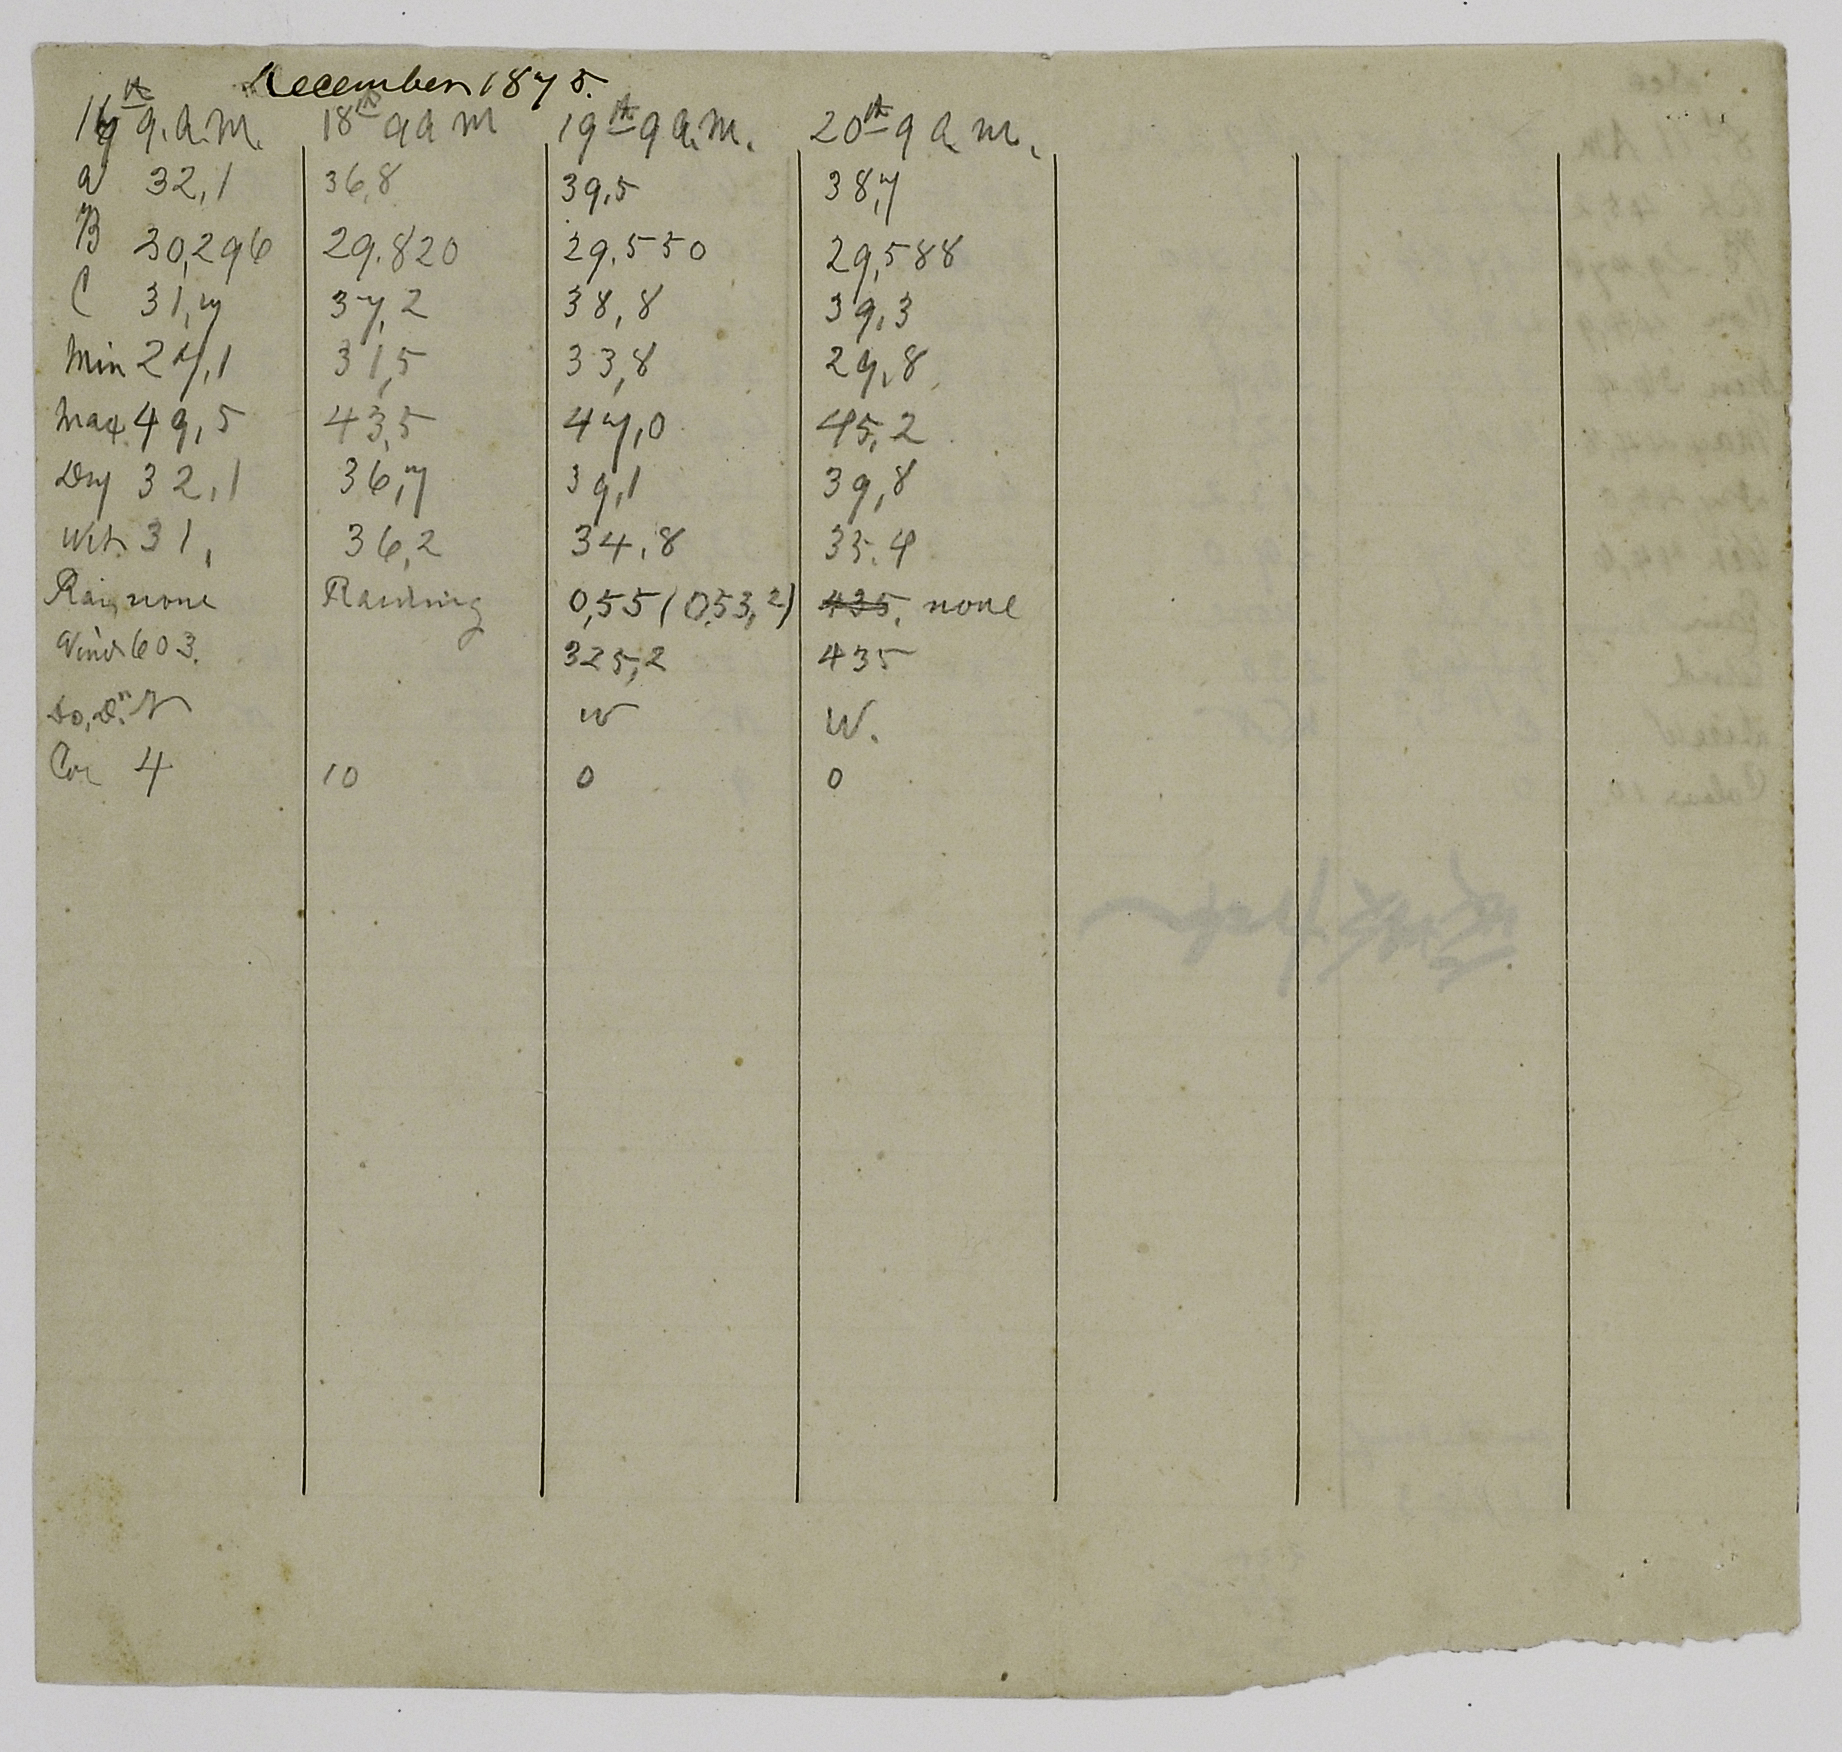 December 1875.
17th 9.a.m. 18th 9 a m 19th 9 a.m. 20th 9 a. m.
a 32,1 36,8 39,5 38,7
B 30,296 29.820 29.550 29,588
C 31,7 37,2 38,8 39,3
Min 27,1 31,5 33,8 29,8
Max. 49,5 43,5 47,0 45,2
Dry 32,1 36,7 39,1 39,8
Wet. 31, 36,2 34,8 35.4
Rain none Raining 0,55 (0,53,2) 435. none
Wind 603. 325,2 435
Do, Dn. W W.
4 10 0 0